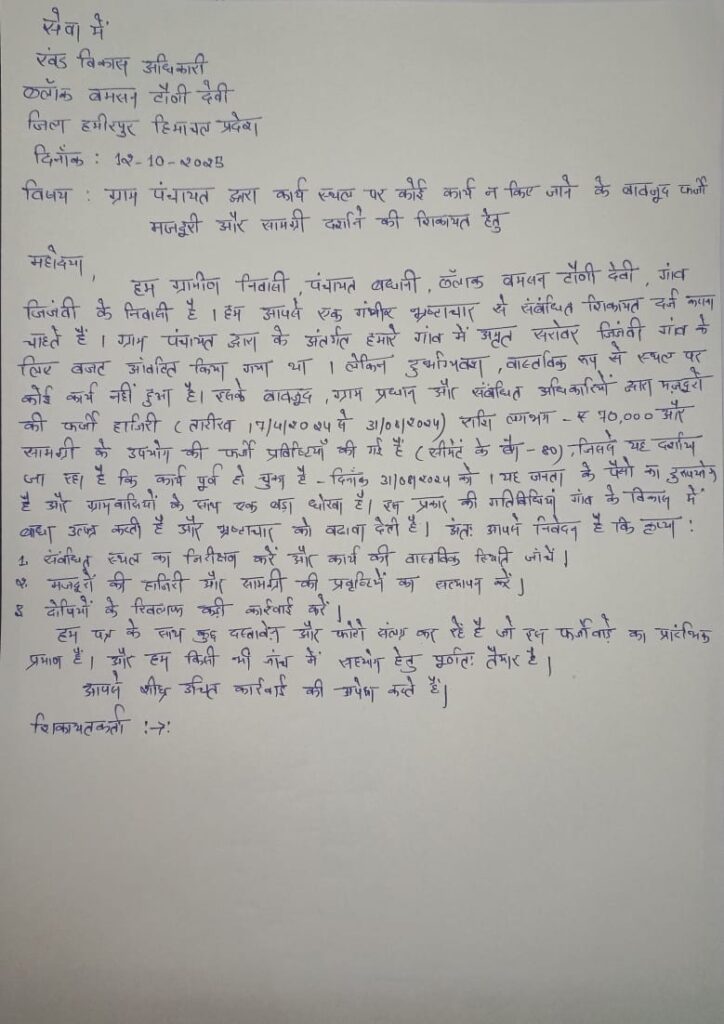 सेवा में
खंड विकास अधिकारी
ब्लॉक बमसन टौणी देवी
जिला हमीरपुर हिमाचल प्रदेश
दिनाँक : 12-10-2025
विषय : ग्राम पंचायत द्वारा कार्य स्थल पर कोई कार्य न किए जाने के बावजूद फर्जी
मजदूरी और सामग्री दर्शाने की शिकायत हेतु
महोदया,
हम ग्रामीण निवासी, पंचायत बधानी, ब्लॉक बमसन टौणी देवी, गांव
जिजंवी के निवासी है। हम आपसे एक गंभीर भ्रष्टाचार से संबंधित शिकायत दर्ज करना
चाहते हैं। ग्राम पंचायत द्वारा के अंतर्गत हमारे गांव में अमृत सरोवर जिजंवी गांव के
लिए बजट आंवटित किया गया था। लेकिन दुर्भाग्यवश, वास्तविक रूप से स्थल पर
कोई कार्य नहीं हुआ है। इसके बावजूद, ग्राम प्रधान और संबंधित अधिकारियों द्वारा मजदूरों
की फर्जी हाजिरी (तारीख 17/4/2024 से 31/08/2024) राशि लगभग - ₹ 70,000 और
सामग्री के उपयोग की फर्जी प्रविष्टियाँ की गई हैं (सीमेंट के बैग - 80), जिससे यह दर्शाया
जा रहा है कि कार्य पूर्व हो चुका है - दिनाँक 31/08/2024 को। यह जनता के पैसों का दुरुपयोग
है और ग्रामवासियों के साथ एक बड़ा धोखा है। इस प्रकार की गतिविधियां गांव के विकास में
बाधा उत्पन्न करती है और भ्रष्टाचार को बढावा देती है। अंतः आपसे निवेदन है कि कृप्या :
1. संबंधित स्थल का निरीक्षण करें और कार्य की वास्तविक स्थिति जांचें।
2. मजदूरों की हाजिरी और सामग्री की प्रवृष्टियों का सत्यापन करें।
3 दोषियों के खिलाफ कड़ी कार्रवाई करें।
हम पत्र के साथ कुछ दस्तावेज और फोटो संलग्न कर रहें है जो इस फर्जीवाड़े का प्रारंभिक
प्रमाण हैं। और हम किसी भी जांच में सहयोग हेतु पूर्णतः तैयार है।
आपसे शीघ्र उचित कार्रवाई की अपेक्षा करते हैं।
शिकायतकर्ता :->: